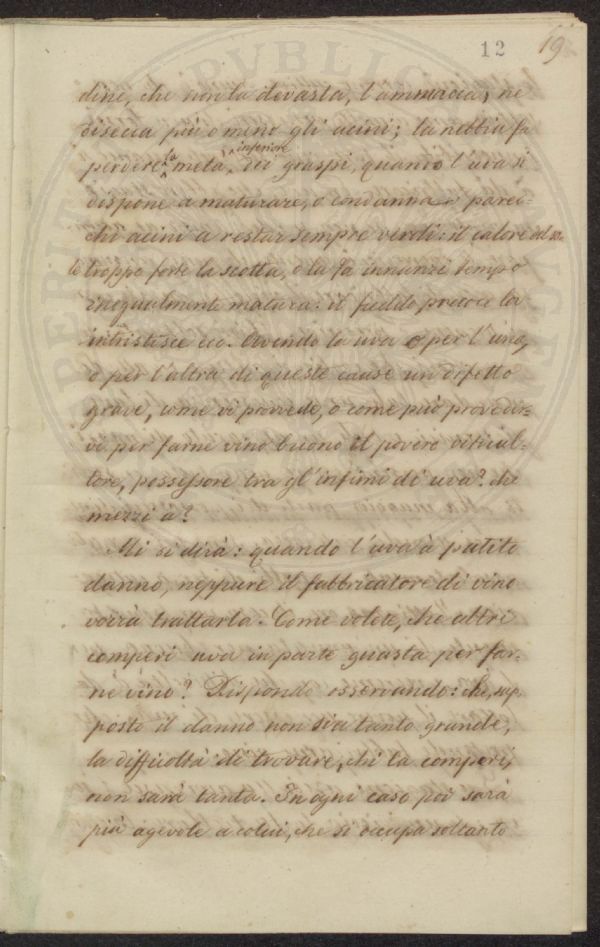 12 19
dine, che non la devasta, l'ammacca, ne
disecca più o meno gli acini; la nebbia fa
perdere la metà inferiore dei graspi, quando l'uva si
dispone a maturare, o condanna parec-
chi acini a restar sempre verdi: il calore del so-
le troppo forte la scotta, o la fa innanzi tempo
inegualmente matura: il freddo precoce la
intristisce ecc. Avendo la uva o per l'una,
o per l'altra di queste cause un difetto
grave, come vi provvede, o come può provveder-
vi per farne vino buono il povero viticul-
tore, possessore tra gl'infimi di uva? che
mezzi à?
Mi si dirà: quando l'uva à patito
danno, neppure il fabbricatore di vino
vorrà trattarla. Come volete, che altri
comperi uva in parte guasta per far-
ne vino? Rispondo osservando: che, sup-
posto il danno non sia tanto grande,
la difficoltà di trovare, chi la comperi,
non sarà tanta. In ogni caso poi sarà
più agevole a colui, che si occupa soltanto
PVBLIC